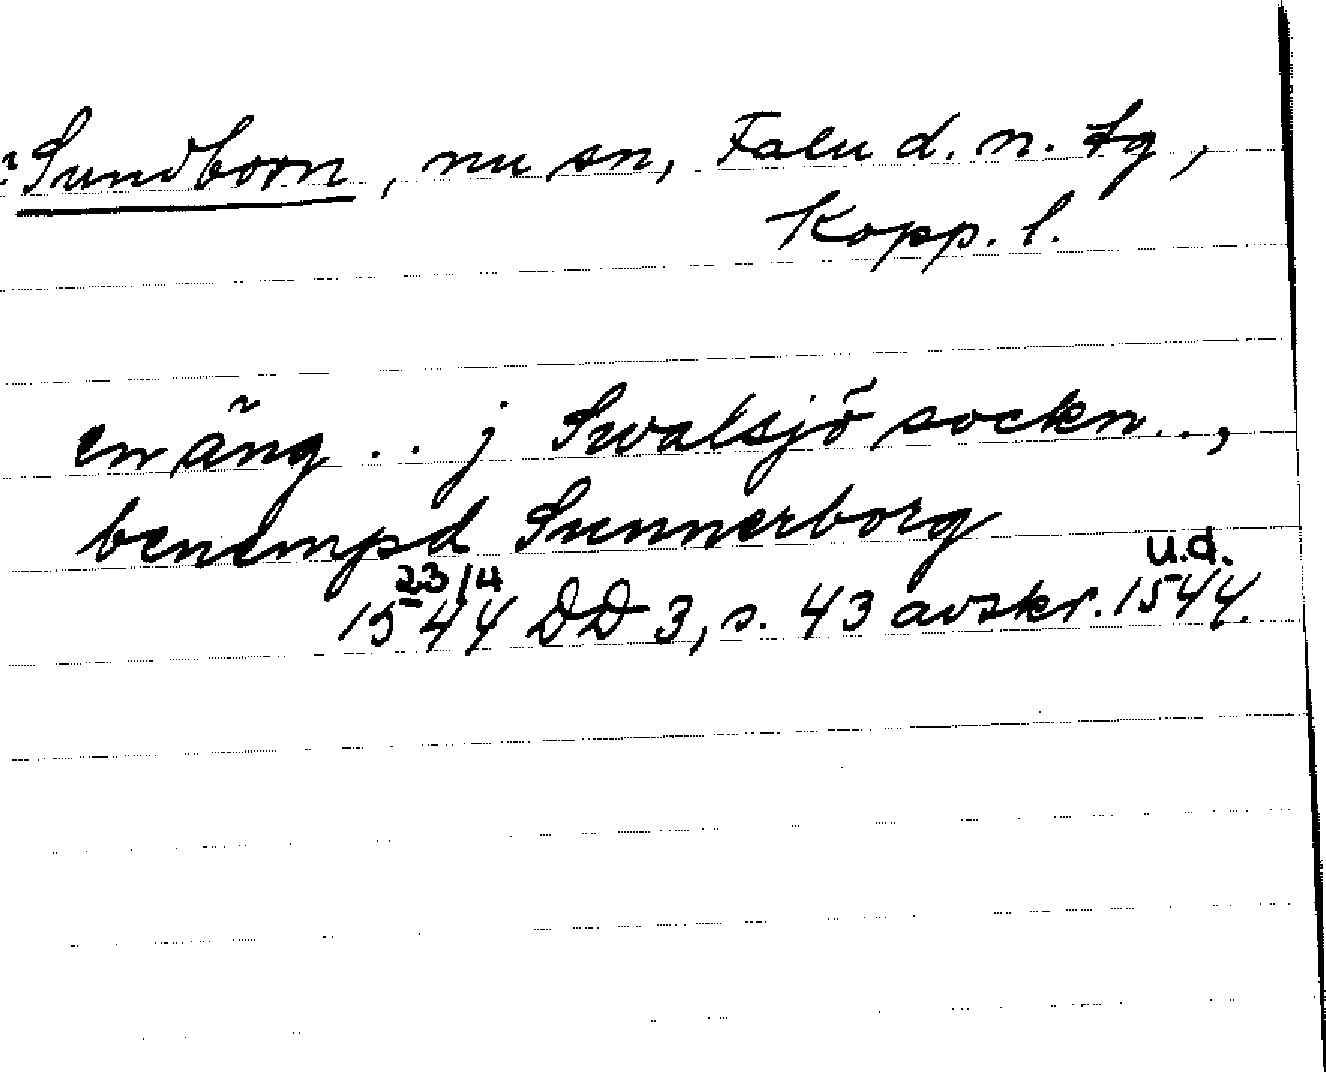 ? Sundborn, nu sn, Falu d. n. tg,
Kopp. l.
en äng . . j Swalsjö sockn . . ,
benempd Sunnerborg
23/4 u.d.
1544 DD 3, s. 43 avskr. 1544.